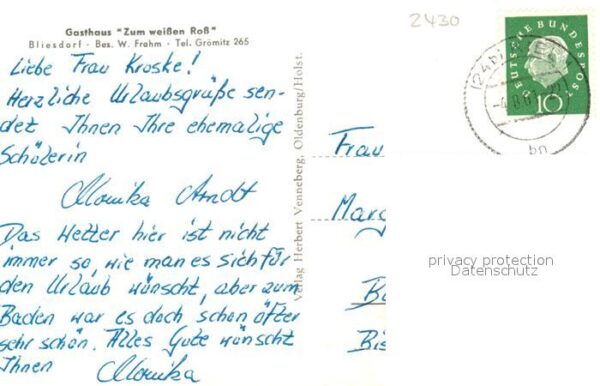 Gasthaus "Zum weißen Roß"
Bliesdorf - Bes. W. Frahm - Tel. Grömitz 265
Liebe Frau Kroske!
Herzliche Urlaubsgrüße sen-
det Ihnen Ihre ehemalige
Schülerin
Monika Arndt
Das Wetter hier ist nicht
immer so, wie man es sich für
den Urlaub wünscht, aber zum
Baden war es doch schon öfter
sehr schön. Alles Gute wünscht
Ihnen
Monika
Verlag Herbert Venneberg, Oldenburg/Holst.
2430
DEUTSCHE BUNDESPOST
10
(24b)
Frau
Marg
Bis
privacy protection
Datenschutz